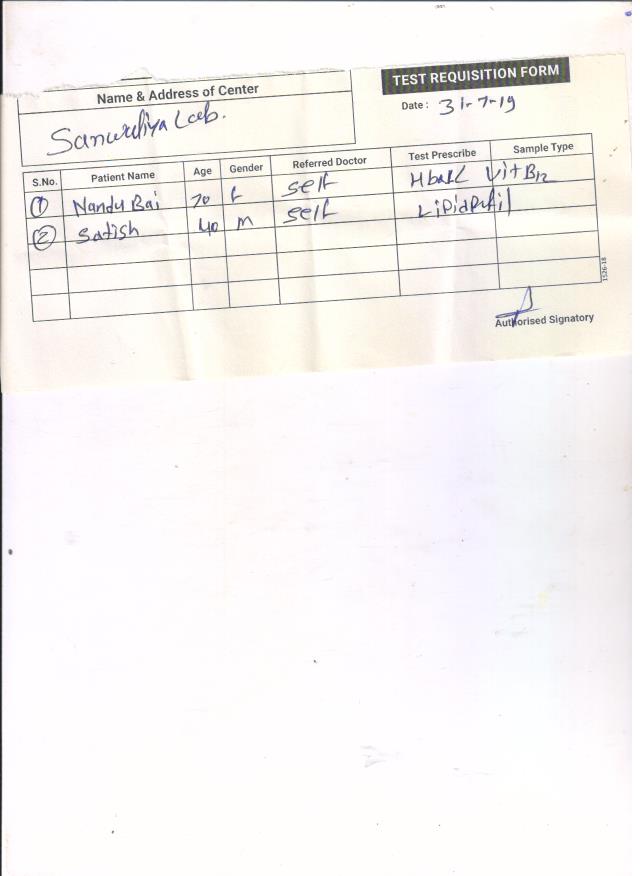 TEST REQUISITION FORM
Name & Address of Center
Date : 31-7-19
Lab.
S.No. Patient Name Age Gender Referred Doctor Test Prescribe Sample Type
1 Nandu Bai 70 f self Vit B12
2 Satish 40 m self Lipid
1526-18
Authorised Signatory